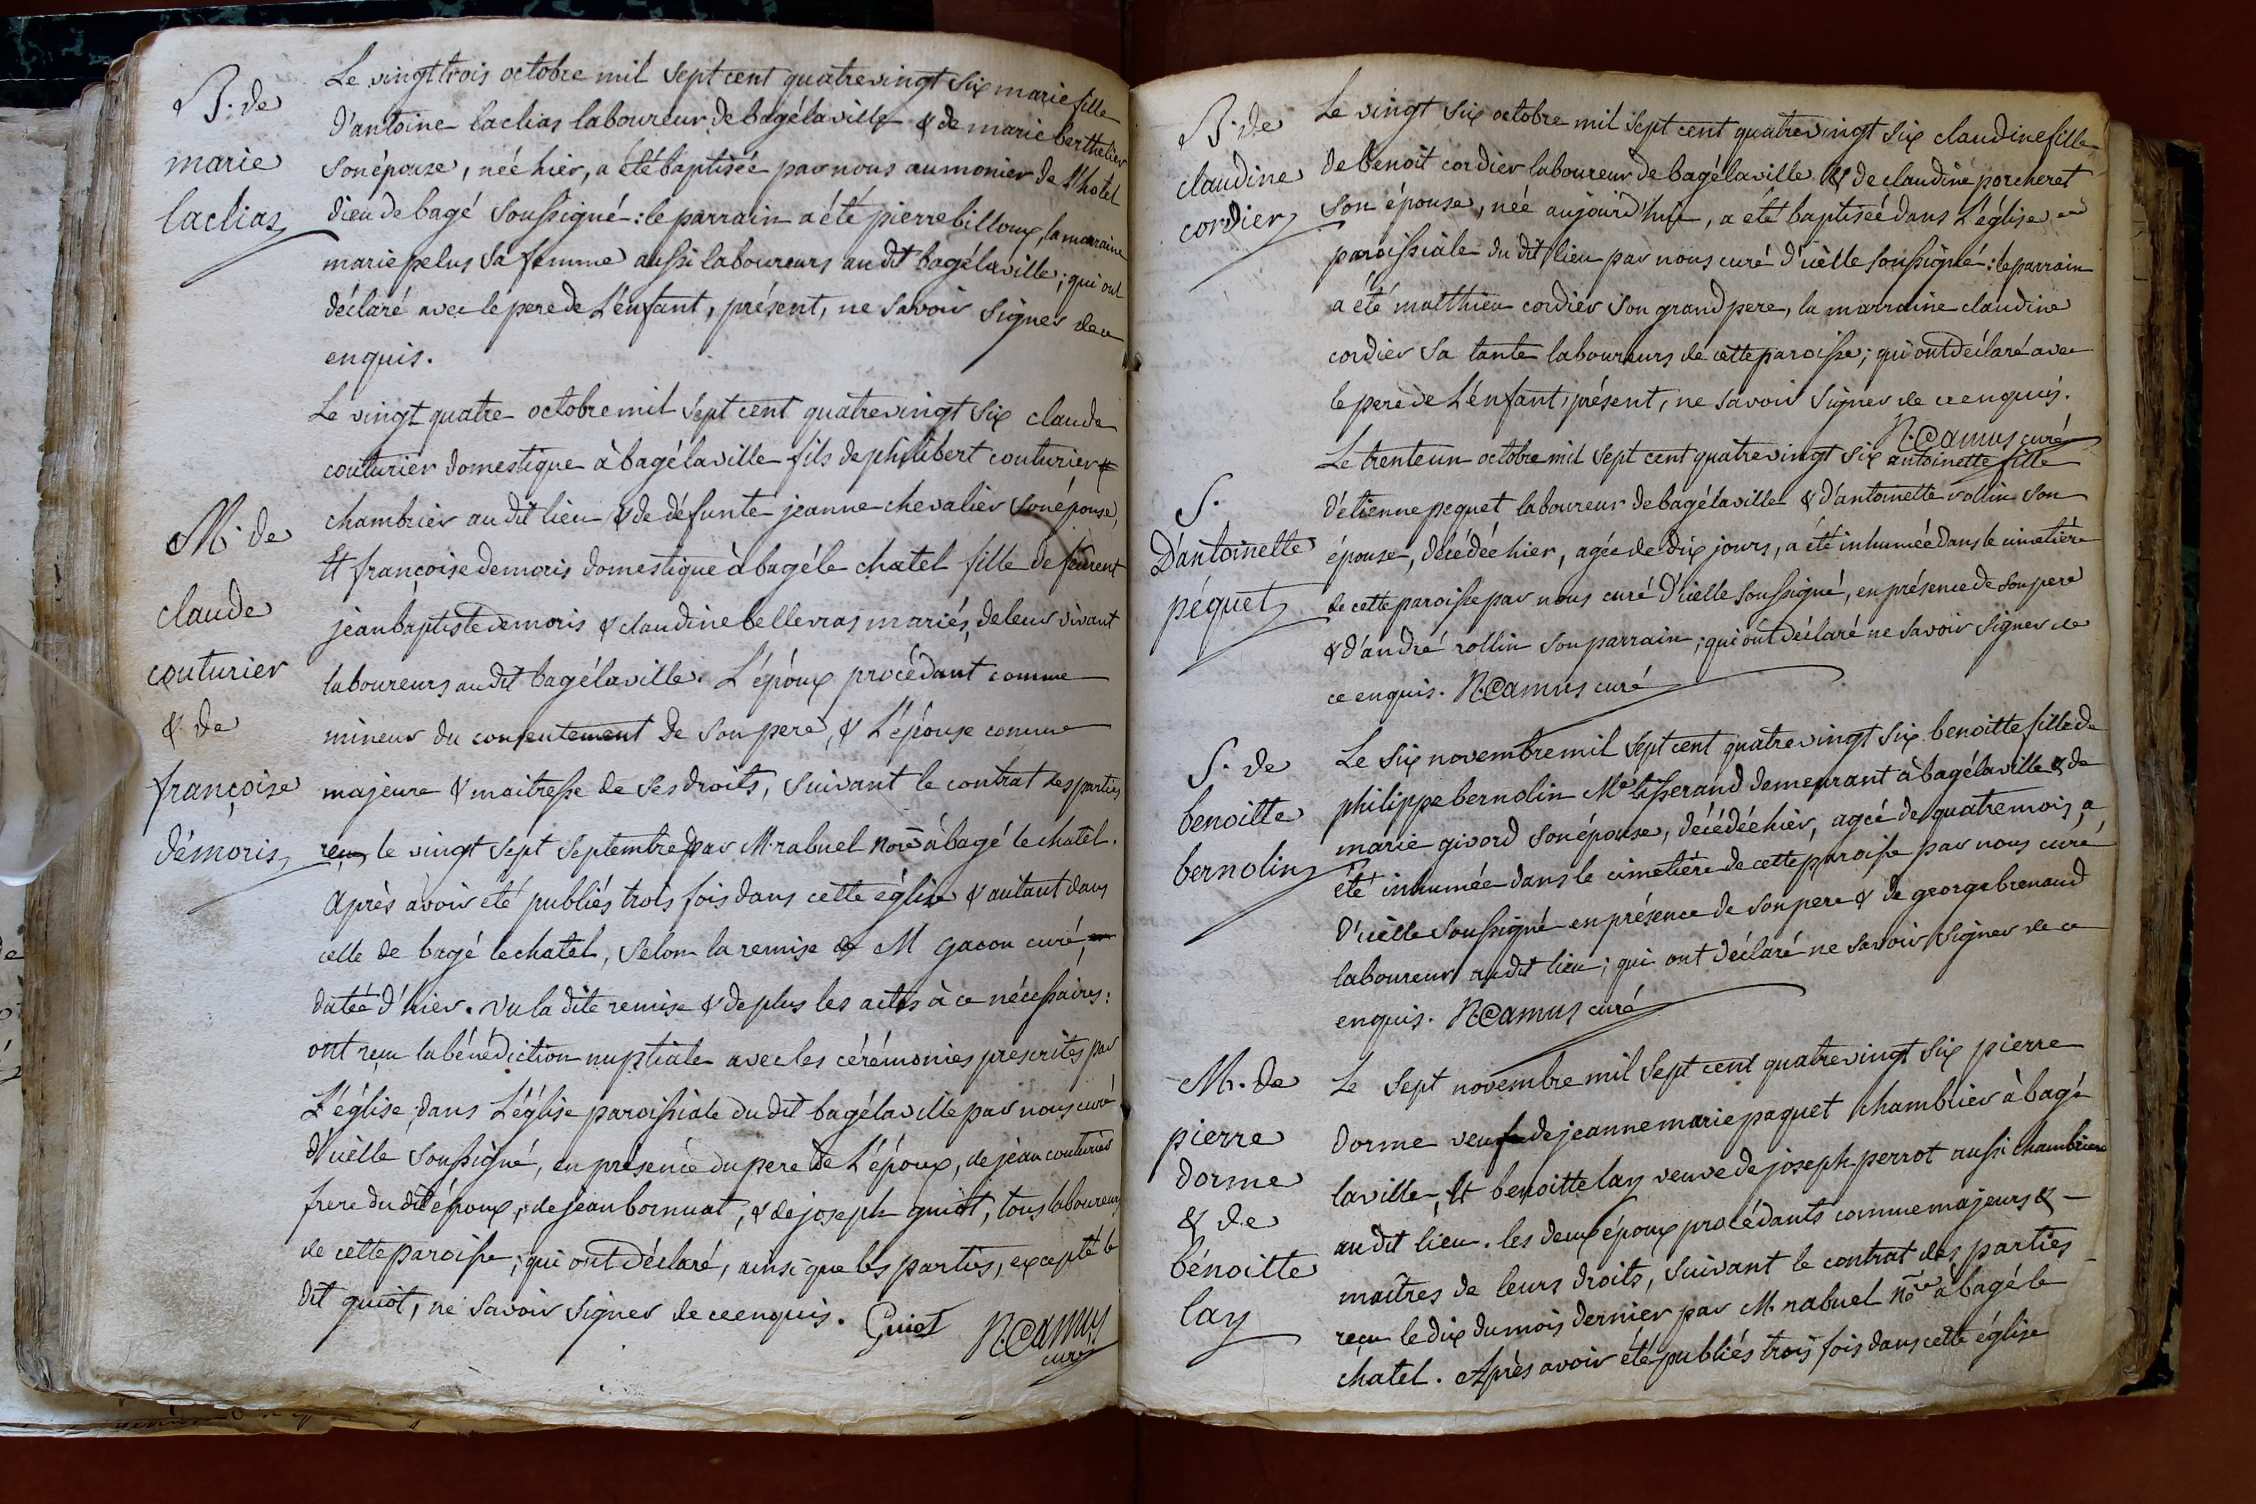 B. de
marie
laclias
Le vingt trois octobre mil sept cent quatre vingt six marie fille
d'antoine laclias laboureur de bagélaville & de marie berthelier
son épouse, née hier, a été baptisée par nous aumonier de l'hotel
dieu de bagé soussigné : le parrain a été pierre billoux, la marraine
marie pelus sa femme aussi laboureurs au dit bagélaville ; qui ont
déclaré avec le pere de L'enfant, présent, ne savoir signer de ce
enquis.
M. de
claude
couturier
& de
françoise
démoris
Le vingt quatre octobre mil sept cent quatre vingt six claude
couturier domestique à bagélaville fils de philibert couturier
chambrier au dit lieu & de défunte jeanne chevalier son épouse,
Et françoise demoris domestique à bagé le chatel fille de
jean baptiste demoris & claudine bellevras mariés, de leur vivant
laboureurs au dit bagélaville. L'époux procédant comme
mineur du consentement de son pere, & L'épouse comme
majeure & maitresse de ses droits, suivant le contrat des parties
reçu le vingt sept septembre par M. rabuel nore à bagé le chatel.
Après avoir été publiés trois fois dans cette église & autant dans
celle de bagé le chatel, selon la remise de M gacon curé,
datée d'hier. Vu la dite remise & de plus les actes à ce nécessaires :
ont reçu la bénédiction nuptiale avec les cérémonies prescrites par
L'église, dans L'église paroissiale du dit bagélaville par nous curé
d'icelle soussigné, en présence du pere de L'époux, de jean couturier
frere du dit époux, de jean bornuat, & de joseph guiot, tous laboureurs
de cette paroisse ; qui ont déclaré, ainsi que les parties, excepté le
dit guiot, ne savoir signer de ce enquis. Guiot N. Camus
curé
B. de
claudine
cordier
Le vingt six octobre mil sept cent quatre vingt six claudine fille
de benoit cordier laboureur de bagélaville & de claudine porcheret
son épouse, née aujourd'hui, a été baptisée dans L'église
paroissiale du dit lieu par nous curé d'icelle soussigné : le parrain
a été matthieu cordier son grand pere, la marraine claudine
cordier sa tante laboureurs de cette paroisse ; qui ont déclaré avec
le pere de L'enfant, présent, ne savoir signer de ce enquis.
N. Camus curé
S.
D'antoinette
péquet
Le trente un octobre mil sept cent quatre vingt six antoinette fille
d'étienne pequet laboureur de bagélaville & d'antoinette rollin son
épouse, décédée hier, agée de dix jours, a été inhumée dans le cimetière
de cette paroisse par nous curé d'icelle soussigné, en présence de son pere
& d'andré rollin son parrain ; qui ont déclaré ne savoir signer de
ce enquis. N. Camus curé
S. de
benoitte
bernolin
Le six novembre mil sept cent quatre vingt six benoitte fille de
philippe bernolin Me tisserand demeurant à bagélaville & de
marie givord son épouse, décédée hier, agée de quatre mois, a
été inhumée dans le cimetière de cette paroisse par nous curé
d'icelle soussigné en présence de son pere & de george brenaud
laboureur au dit lieu ; qui ont déclaré ne savoir signer de ce
enquis. N. Camus curé
M. de
pierre
dorme
& de
bénoitte
lay
Le sept novembre mil sept cent quatre vingt six pierre
dorme veuf de jeanne marie paquet chambrier à bagé
laville, Et benoitte lay veuve de joseph perrot aussi chambriere
au dit lieu. les deux époux procédants comme majeurs &
maîtres de leurs droits, suivant le contrat des parties
reçu le dix du mois dernier par M. rabuel nore à bagé le
chatel. Après avoir été publiés trois fois dans cette église